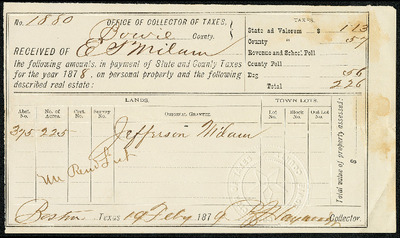 No. 1880 OFFICE OF COLLECTOR OF TAXES,
Bowie County.
RECEIVED OF E S Milam
the following amounts, in payment of State and County Taxes
for the year 1878, on personal property and the following
described real estate:
TAXES.
State ad Valorem 1 13
County " 57
Revenue and School Poll
County Poll
Dog 56
Total 2 26
LANDS. TOWN LOTS.
Abst. No. No. of Acres. Cert. No. Survey No. ORIGINAL GRANTEE. Lot No. Block No. Out Lot No.
Total value of property assessed: $
375 225 Jefferson Milam
Boston Texas 19 Feby 1879 Collector.